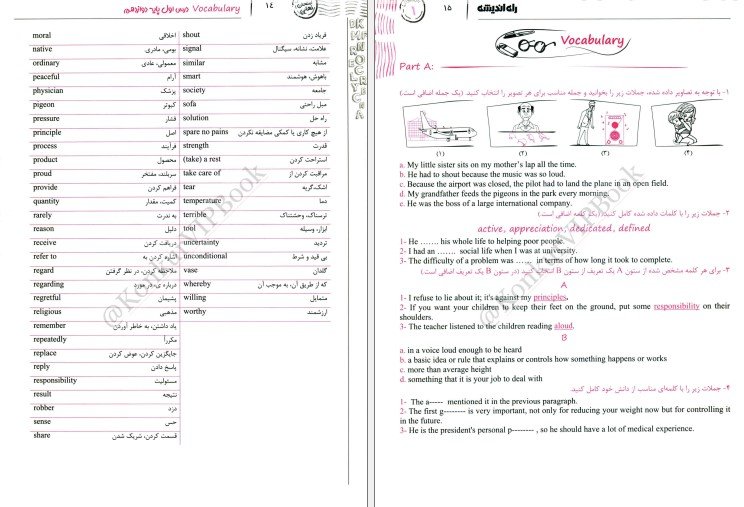 Vocabulary درس اول پایه دوازدهم
۱۴
moral اخلاقی
native بومی، مادری
ordinary معمولی، عادی
peaceful آرام
physician پزشک
pigeon کبوتر
pressure فشار
principle اصل
process فرآیند
product محصول
proud سربلند، مفتخر
provide فراهم کردن
quantity کمیت، مقدار
rarely به ندرت
reason دلیل
receive دریافت کردن
refer to اشاره کردن به
regard ملاحظه کردن، در نظر گرفتن
regarding درباره ی، در مورد
regretful پشیمان
religious مذهبی
remember یاد داشتن، به خاطر آوردن
repeatedly مکرراً
replace جایگزین کردن، عوض کردن
reply پاسخ دادن
responsibility مسئولیت
result نتیجه
robber دزد
sense حس
share قسمت کردن، شریک شدن
shout فریاد زدن
signal علامت، نشانه، سیگنال
similar مشابه
smart باهوش، هوشمند
society جامعه
sofa مبل راحتی
solution راه حل
spare no pains از هیچ کاری یا کمکی مضایقه نکردن
strength قدرت
(take) a rest استراحت کردن
take care of مراقبت کردن از
tear اشک، گریه
temperature دما
terrible ترسناک، وحشتناک
tool ابزار، وسیله
uncertainty تردید
unconditional بی قید و شرط
vase گلدان
whereby که از طریق آن، به موجب آن
willing متمایل
worthy ارزشمند
@KonkurVIPBook
۱۵
راه اندیشه
Vocabulary
Part A:
۱- با توجه به تصاویر داده شده، جملات زیر را بخوانید و جمله مناسب برای هر تصویر را انتخاب کنید (یک جمله اضافی است).
(۱) (۲) (۳) (۴)
a. My little sister sits on my mother's lap all the time.
b. He had to shout because the music was so loud.
c. Because the airport was closed, the pilot had to land the plane in an open field.
d. My grandfather feeds the pigeons in the park every morning.
e. He was the boss of a large international company.
۲- جملات زیر را با کلمات داده شده کامل کنید. (یک کلمه اضافی است)
active, appreciation, dedicated, defined
1- He ....... his whole life to helping poor people.
2- I had an ....... social life when I was at university.
3- The difficulty of a problem was ....... in terms of how long it took to complete.
۳- برای هر کلمه مشخص شده از ستون A یک تعریف از ستون B انتخاب کنید (در ستون B یک تعریف اضافی است)
A
1- I refuse to lie about it; it's against my principles.
2- If you want your children to keep their feet on the ground, put some responsibility on their
shoulders.
3- The teacher listened to the children reading aloud.
B
a. in a voice loud enough to be heard
b. a basic idea or rule that explains or controls how something happens or works
c. more than average height
d. something that it is your job to deal with
۴- جملات زیر را با کلمه‌ای مناسب از دانش خود کامل کنید.
1- The a----- mentioned it in the previous paragraph.
2- The first g-------- is very important, not only for reducing your weight now but for controlling it
in the future.
3- He is the president's personal p-------- , so he should have a lot of medical experience.
@KonkurVIPBook